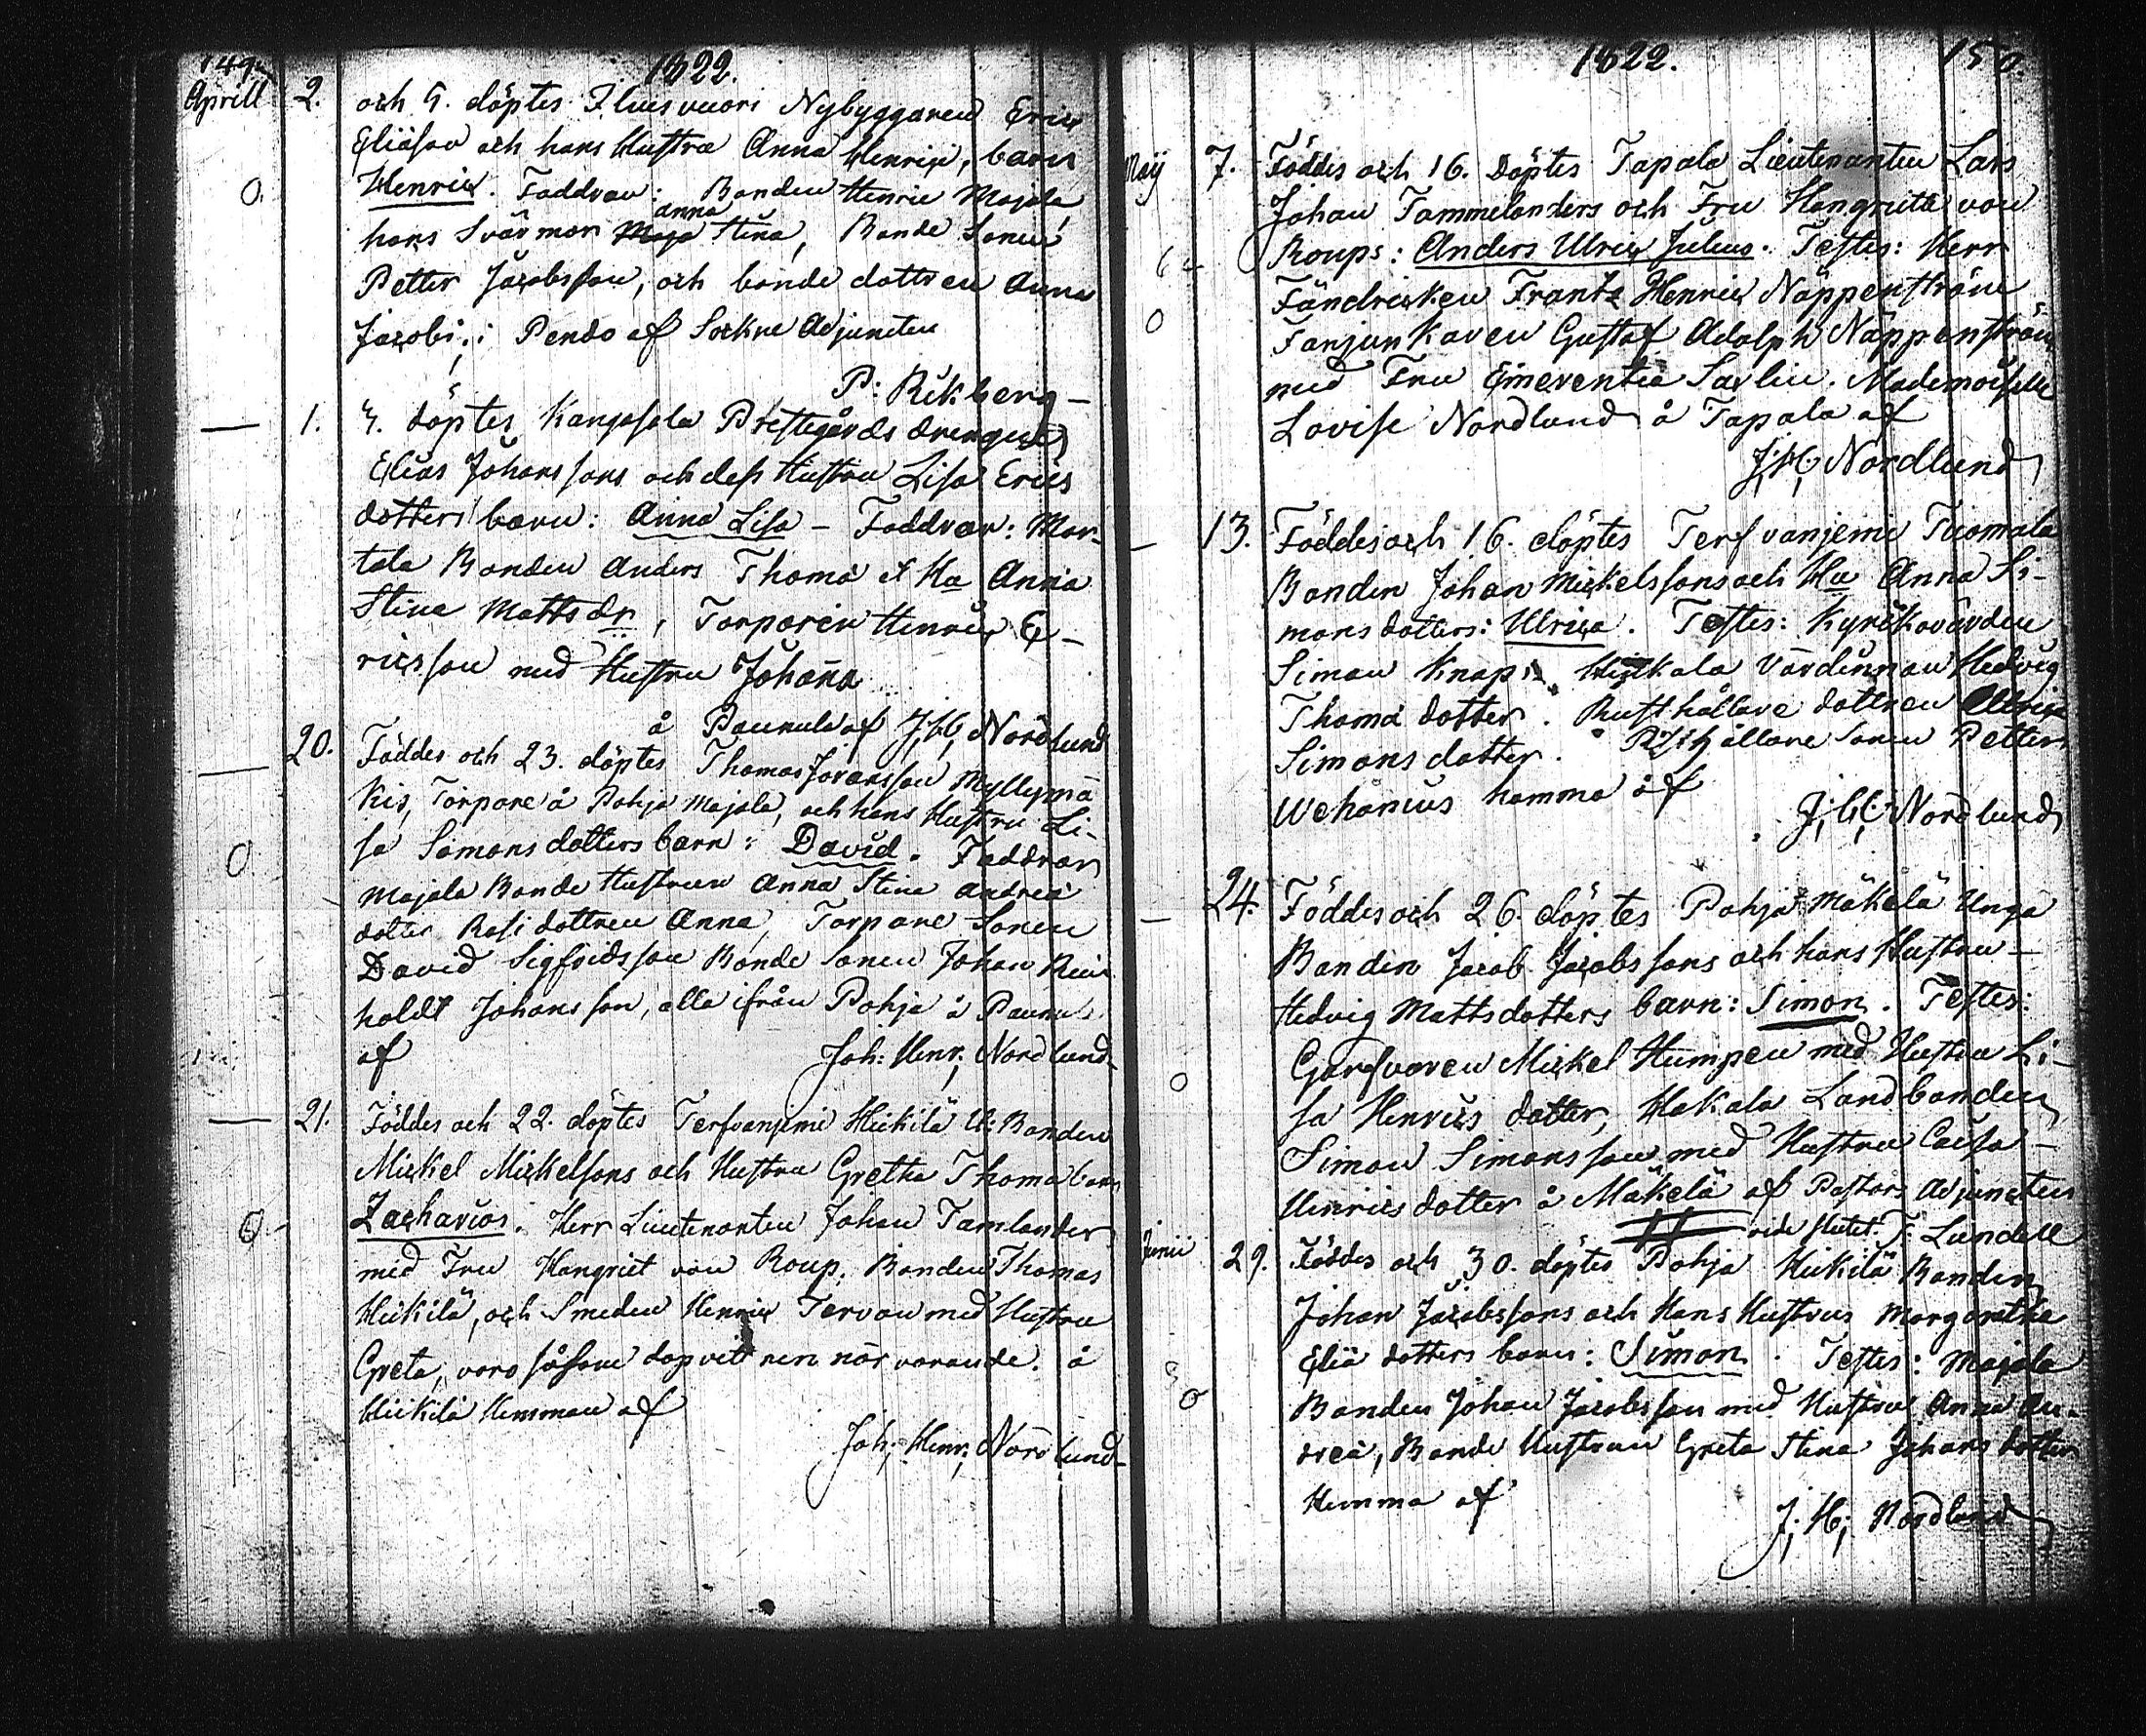 149.
1822.
Aprill 2. och 9. döptes Ilves vuori Nybyggaren Eric
Eliäson och hans Hustru Anna Henrix, barn
Henric. Faddrar: Bonden Henric Majala
anna
hans Svärmor Maja Stina, Bonde Sonen
Petter Jacobsson, och bonde dottren Anna
Jacobs; i Pendo af Sockne Adjuncten
P: Rikberg
1. 4. döptes Kangasala Prestegårds drengens
Elias Johanssons och dess Hustru Lisa Erics
dotters barn: Anna Lisa - Faddrar: Mar-
tala Bonden Anders Thoma et Hu Anna
Stina Mattsdr, Torparen Henric E-
ricsson med Hustru Johanna
å Paunula af J; H; Nordlund
20. Föddes och 23. döptes Thomas Göransson Myllymä
kis, Torpare å Pohja Majala, och hans Hustru Li-
sa Simons dotters barn: David. Faddrar
Majala Bonde Hustrun Anna Stina Andreä
dotter Rasi dottren Anna, Torpare Sonen
David Sigfridsson Bonde Sonen Johan Rein
holdt Johansson, alla ifrån Pohja å Paunu
af Joh: Henr; Nordlund
21. Föddes och 22. döptes Terfvanjemi Heikilä U: Bonden
Mickel Mickelsons och Hustru Gretha Thoma barn
Zacharias. Herr Lieutenanten Johan Tamlander
med Fru Hangriet von Roup. Bonden Thomas
Heikilä, och Smeden Henric Tervon med Hustru
Greta, voro såsom dopvittnen närvarande. å
Heikilä Hemman af
Joh; Henr; Nordlund
1822. 150.
Maij 7. Föddes och 16. Döptes Tapala Lieutenanten Lars
Johan Tammelanders och Fru Hangrieta von
Roups: Anders Ulric Julius. Testes: Herr
Fändricken Frantz Henric Näppenström
Fanjunkaren Gustaf Adolph Näppenström
med Fru Emerentia Savlin. Mademoiselle
Lovise Nordlund å Tapala af
J; H; Nordlund
13. Föddes och 16. döptes Terfvanjemi Tuomala
Bonden Johan Mickelssons och Hu Anna Si-
mons dotters: Ulrica. Testes: Kyrckovärden
Simon Knapi Heikala Värdinnan Hedvig
Thoma dotter. Rusthållare dottren Ulrica
Simons dotter. Rsthållare Sonen Petter
Wehonius hamma af
J; H; Nordlund
24. Föddes och 26. döptes Pohja Mäkelä Unga
Bonden Jacob Jacobssons och hans Hustru
Hedvig Mattsdotters barn: Simon. Testes:
Garfvaren Mickel Humpen med Hustru Li-
sa Henrics dotter, Hakala Landbonden
Simon Simonsson med Hustru Caisa
Henrics dotter å Mäkelä af Pastors Adjuncten
vide slutet. F: Lundell
Junii 29. Föddes och 30. döptes Pohja Heikilä Bonden
Johan Jacobssons och Hans Hustrus Margaretha
Eliä dotters barn: Simon. Testes: Majala
Bonden Johan Jacobsson med Hustru Anna An-
dreä, Bonde Hustrun Greta Stina Johans dotter
Hemma af
J; H; Nordlund